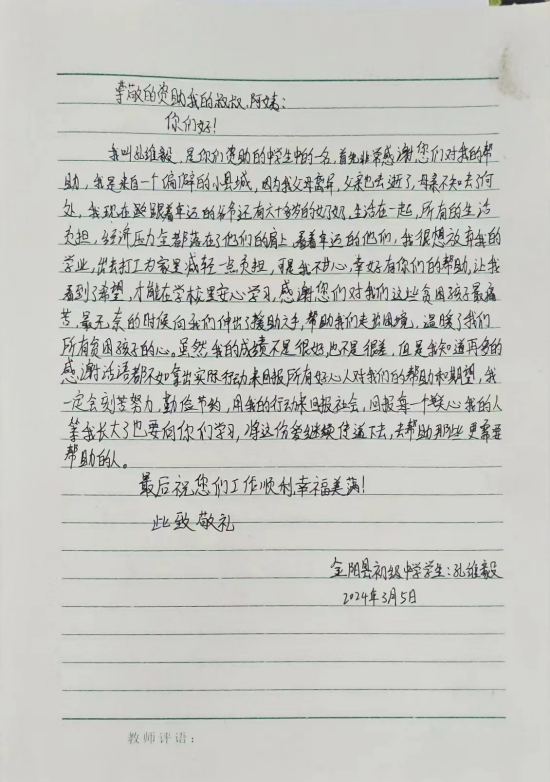 尊敬的资助我的叔叔,阿姨:
你们好!
我叫孔维毅,是你们资助的中学生中的一名,首先非常感谢您们对我的帮
助,我是来自一个偏僻的小县城,因为我父母离异,父亲也去逝了,母亲不知去了何
处,我现在跟着年迈的爷爷还有六十多岁的奶奶,生活在一起,所有的生活
负担,经济压力全部落在了他们的肩上,看着年迈的他们,我很想放弃我的
学业,出去打工为家里减轻一点负担,可是我不甘心,幸好有你们的帮助,让我
看到了希望,才能在学校里安心学习,感谢您们对我们这些贫困孩子最痛
苦,最无奈的时候向我们伸出了援助之手,帮助我们走出困境,温暖了我们
所有贫困孩子的心。虽然,我的成绩不是很好,也不是很差,但是我知道再多的
感谢话语都不如拿出实际行动来回报所有好心人对我们的帮助和期望,我
一定会刻苦努力,勤俭节约,用我的行动来回报社会,回报每一个关心我的人
等我长大了也要向你们学习,将这份爱继续传递下去,去帮助那些更需要
帮助的人。
最后祝您们工作顺利,幸福美满!
此致敬礼
金阳县初级中学学生:孔维毅
2024年3月5日
教师评语: